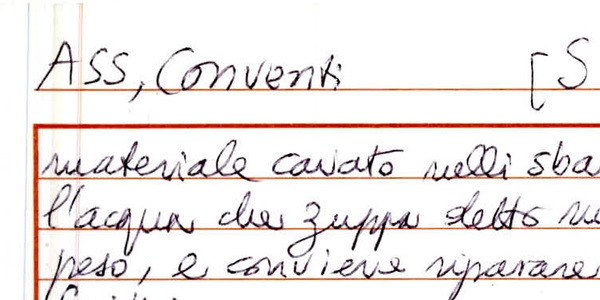 ASS, Conventi [S
materiale cavato nelli sba
l'acqua che zuppa detto
peso, e conviene riparare